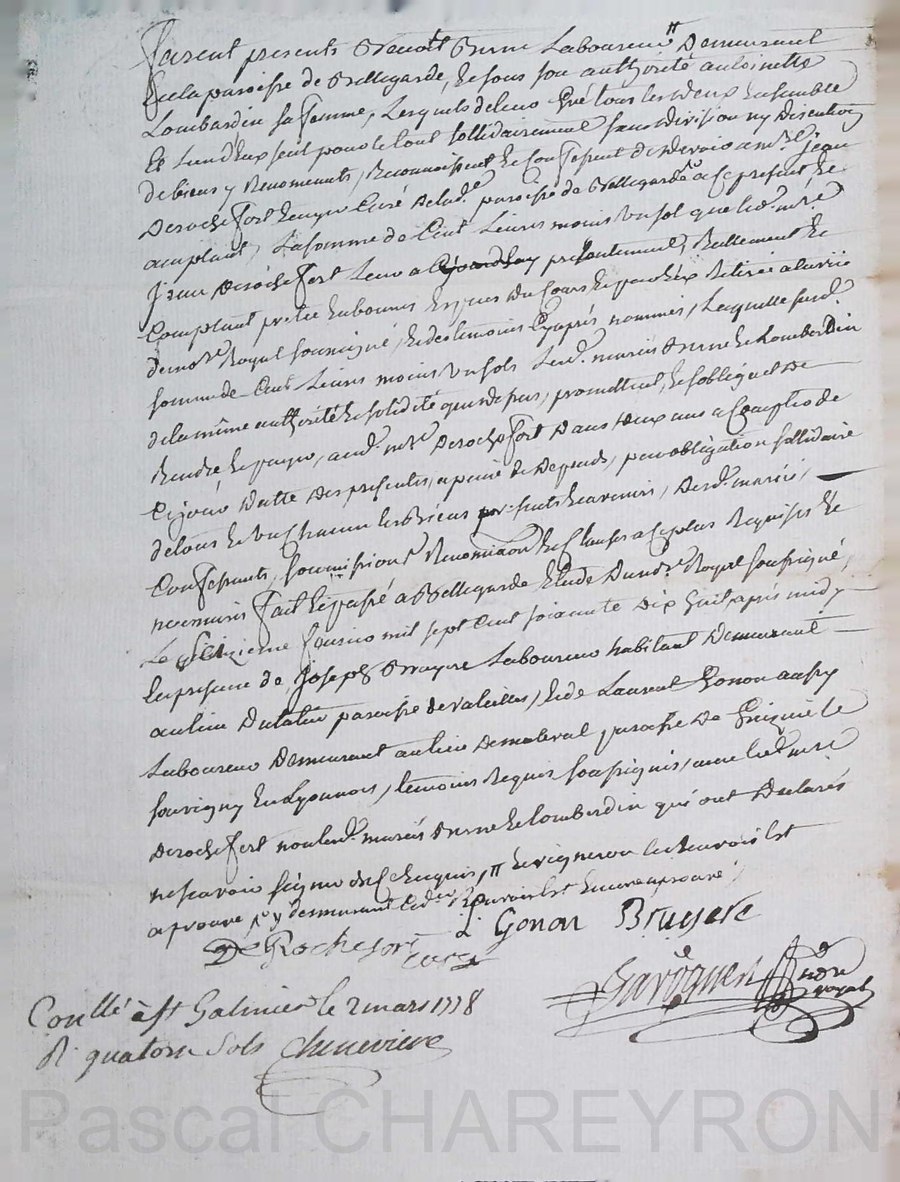 furent presents Benoit Brine Laboureur ♯ Demeurant
En la paroisse de Bellegarde, & sous son authorité antoinette
Lombardin sa femme, Lesquels de leur gré tous les deux ensemble
Et l'un d'eux seul pour le tout sollidairement sans division ny Discution
de biens y Renoncants, Reconnoissent & Confessent de devoir a mre. Jean
Derochefort Curé de lade. paroisse de Bellegarde a ce present &
acceptant, La somme de Cent Livres moins un sol que led. mre
Jean Derochefort Leur a presentement, Reellement &
Comptant pretée en bonnes Espues du Cours Retirée a la vüe
de nore. Royal soussigné, & des temoins Cy après nommés, Laquelle susde.
somme de Cent Livres moins un sols Lesd. mariés Brine & Lombardin
de la même authorité & solidité que dessus, promettent, & s'obligent de
Rendre, & payer, aud. mre Derochefort Dans deux ans a Compter de
Ce jour Datte Des presentes, a peine de Depends, par obligation sollidaire
de tous & un Chacun les Biens presents & avenir, Desd. mariés,
Confessants, soumissions Renonciaõn & Clauses a ce plus Requises &
necessaires fait & passé a Bellegarde Etude Dud nore Royal soussigné,
Le seizieme fevrier mil sept Cent soixante Dix huit après midy
En presence de Joseph Bruyere Laboureur habitant Demeurant
au lieu paroisse de valeilles, & de Laurent Gonon aussy
Laboureur Demeurant au lieu de maleval paroisse De Grezieu le
souvigny En Lyonnois, temoins Requis soussignés, avec led. mre
Derochefort non lesd. mariés Brine & Lombardin qui ont Declarés
ne scavoir signer de ce Enquis, ♯ & vigneron Led Renvoi Est
aprouvé, y demeurant led. Renvoi Est Encore aprouvé,
De Rochefort curé L. Gonon Bruyere
nore royal
Conllé à St Galmier le 2 mars 1778
R quatorze sols Chenevier
Pascal CHAREYRON